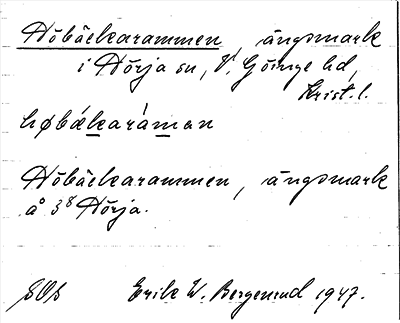 Höbäckarammen, ängsmark
i Nörja sn, V. Göinge hd,
Krist. l.
høbákaráman
Höbäckarammen, ängsmark
å 3⁸ Nörja.
SOS Erik W. Bergenrud 1947.